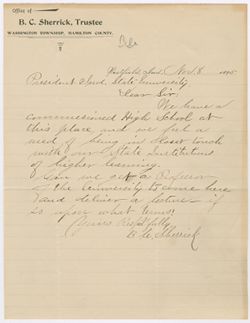 Office of
B. C. Sherrick, Trustee
WASHINGTON TOWNSHIP, HAMILTON COUNTY.
Westfield Ind. Nov. 8 1895
President Ind. State University
Dear Sir:
We have a
commissioned High School at
this place and we feel a
need of being in closer touch
with our State Institutions
of higher learning.
Can we get a Professor
of the University to come here
and deliver a lecture if
so upon what terms.
Yours Respectfully
B. C. Sherrick